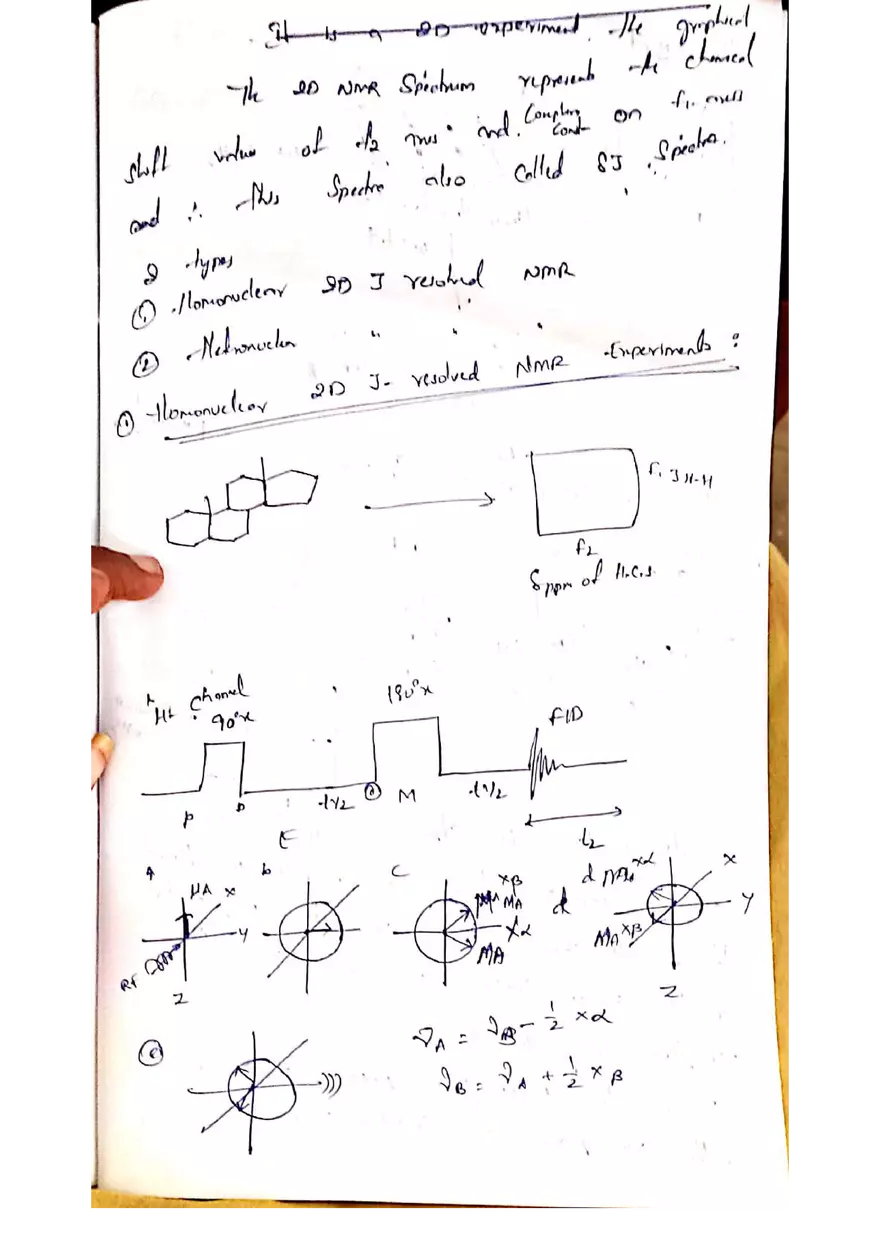 It is a 2D experiment. The graphical
The 2D NMR Spectrum represents the chemical
shift value of f2 and Coupling Const on f1 axis
and ∴ this Spectra also called δJ Spectra.
2 types
① Homonuclear 2D J resolved NMR
② Hetronuclear " " "
① Homonuclear 2D J- resolved NMR Experiments :
F1 J H-H
F2
δ ppm of H.C.S.
H1 Channel
90°x 180°x FID
P D t1/2 M t1/2
E t2
a MA X Y Z RF
b
c Xβ MA Xα MA
d d MA Xα X Y MA Xβ Z
ν A = ν AB - 1/2 × α
ν B = ν A + 1/2 × β
e